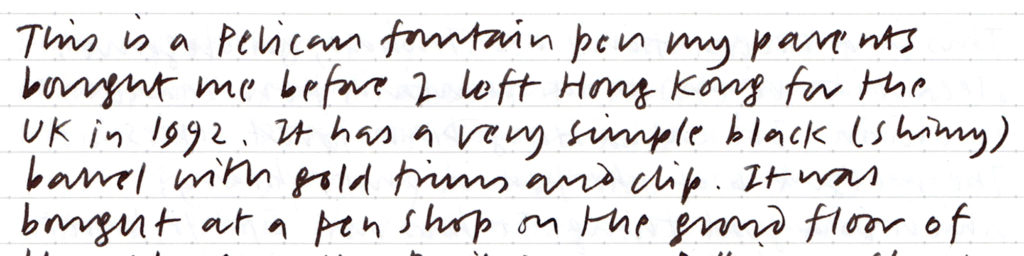 This is a Pelican fountain pen my parents
bought me before I left Hong Kong for the
UK in 1992. It has a very simple black (shiny)
barrel with gold trims and clip. It was
bought at a pen shop on the ground floor of